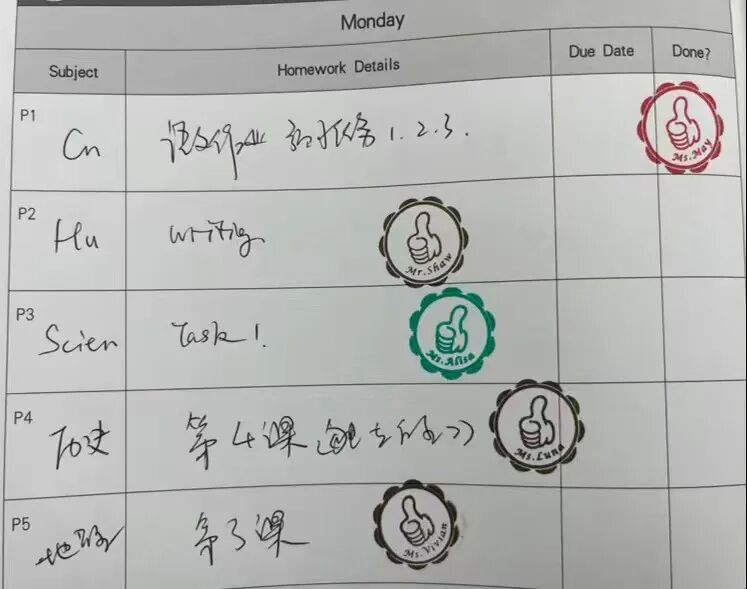 Monday
Subject Homework Details Due Date Done?
P1 Cn 语文作业 任务1.2.3. Ms.May
P2 Hu writing Mr.Shaw
P3 Scien Task 1. Ms.Alisa
P4 历史 第4课 Ms.Luna
P5 地理 第3课 Ms.Vivian